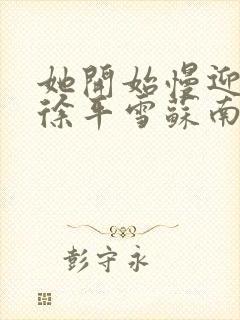 她開始慢迎
徐平雪蘇南
彭守永